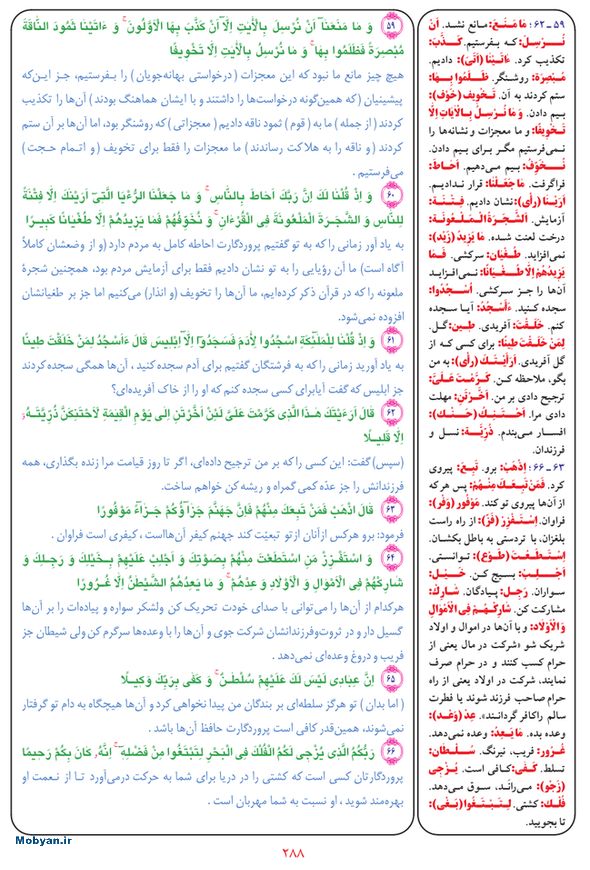 ۵۹ وَ مَا مَنَعَنَآ اَنْ نُرْسِلَ بِالْأٰیٰتِ اِلآَّ اَنْ کَذَّبَ بِهَا الْاَوَّلُونَ ۚ وَ ءَاتَیْنَا ثَمُودَ النَّاقَةَ
مُبْصِرَةً فَظَلَمُوا بِهَا ۚ وَ مَا نُرْسِلُ بِالْأٰیٰتِ اِلَّا تَخْوِیفًا
هیچ چیز مانع ما نبود که این معجزات (درخواستی بهانه‌جویان) را بـفرستیم، جـز ایـن‌که
پیشینیان (که همین‌گونه درخواست‌ها را داشتند و با ایشان هماهنگ بودند) آن‌ها را تکذیب
کردند (از جمله) ما به (قوم) ثمود ناقه دادیم (معجزاتی) که روشنگر بود، اما آن‌ها بر آن ستم
کردند (و ناقه را به هلاکت رساندند) ما معجزات را فقط برای تخویف (و اتـمام حـجت)
می‌فرستیم .
۶۰ وَ اِذْ قُلْنَا لَكَ اِنَّ رَبَّكَ اَحَاطَ بِالنَّاسِ ۚ وَ مَا جَعَلْنَا الرُّءْیَا الَّتِیٓ اَرَیْنٰكَ اِلَّا فِتْنَةً
لِلنَّاسِ وَ الشَّجَرَةَ الْمَلْعُونَةَ فِی الْقُرْءَانِ ۚ وَ نُخَوِّفُهُمْ فَمَا یَزِیدُهُمْ اِلَّا طُغْیَانًا کَبِیرًا
به یاد آور زمانی را که به تو گفتیم پروردگارت احاطه کامل به مردم دارد (و از وضعشان کاملاً
آگاه است) ما آن رؤیایی را به تو نشان دادیم فقط برای آزمایش مردم بود، همچنین شجرهٔ
ملعونه را که در قرآن ذکر کرده‌ایم، ما آن‌ها را تخویف (و انذار) می‌کنیم اما جز بر طغیانشان
افزوده نمی‌شود.
۶۱ وَ اِذْ قُلْنَا لِلْمَلٰٓئِکَةِ اسْجُدُوا لِأٰدَمَ فَسَجَدُوٓا اِلآَّ اِبْلِیسَ قَالَ ءَاَسْجُدُ لِمَنْ خَلَقْتَ طِینًا
به یاد آورید زمانی را که به فرشتگان گفتیم برای آدم سجده کنید ، آن‌ها همگی سجده کردند
جز ابلیس که گفت آیابرای کسی سجده کنم که او را از خاک آفریده‌ای؟
۶۲ قَالَ اَرَءَیْتَكَ هٰذَا الَّذِی کَرَّمْتَ عَلَیَّ لَئِنْ اَخَّرْتَنِ اِلٰی یَوْمِ الْقِیٰمَةِ لَاَحْتَنِکَنَّ ذُرِّیَّتَهُٓ
اِلَّا قَلِیـلًا
(سپس) گفت: این کسی را که بر من ترجیح داده‌ای، اگر تا روز قیامت مرا زنده بگذاری، همه
فرزندانش را جز عدّه کمی گمراه و ریشه کن خواهم ساخت.
۶۳ قَالَ اذْهَبْ فَمَنْ تَبِعَكَ مِنْهُمْ فَاِنَّ جَهَنَّمَ جَزَآؤُکُمْ جَزَآءً مَوْفُورًا
فرمود: برو هرکس ازآنان از تو تبعیّت کند جهنم کیفر آن‌هااست ، کیفری است فراوان .
۶۴ وَ اسْتَفْزِزْ مَنِ اسْتَطَعْتَ مِنْهُمْ بِصَوْتِكَ وَ اَجْلِبْ عَلَیْهِمْ بِخَیْلِكَ وَ رَجِلِكَ وَ
شَارِکْهُمْ فِی الْاَمْوَالِ وَ الْاَوْلَادِ وَ عِدْهُمْ ۚ وَ مَا یَعِدُهُمُ الشَّیْطٰنُ اِلَّا غُـرُورًا
هرکدام از آن‌ها را می‌توانی با صدای خودت تحریک کن ولشکر سواره و پیاده‌ات را بر آن‌ها
گسیل دار و در ثروت‌وفرزندانشان شرکت جوی و آن‌ها را با وعده‌ها سرگرم کن ولی شیطان جز
فریب و دروغ وعده‌ای نمی‌دهد .
۶۵ اِنَّ عِبَادِی لَیْسَ لَكَ عَلَیْهِمْ سُلْطٰـنٌ ۚ وَ کَفٰی بِرَبِّكَ وَکِیـلًا
(اما بدان) تو هرگز سلطه‌ای بر بندگان من پیدا نخواهی کرد و آن‌ها هیچگاه به دام تو گرفتار
نمی‌شوند، همین‌قدر کافی است پروردگارت حافظ آن‌ها باشد .
۶۶ رَبُّکُمُ الَّذِی یُزْجِی لَکُمُ الْفُلْكَ فِی الْبَحْرِ لِتَبْتَغُوا مِنْ فَضْلِهٓ ۚ اِنَّهُ کَانَ بِکُمْ رَحِیمًا
پروردگارتان کسی است که کشتی را در دریا برای شما به حرکت درمی‌آورد تـا از نـعمت او
بهره‌مند شوید ، او نسبت به شما مهربان است .
۵۹ ـ ۶۲؛ مَا مَـنَـعَ: مـانع نشـد. اَنْ
نُـرْسِـلَ: کـه بـفرستیم. کَـذَّبَ:
تکذیب کرد. ءَاتَـیْنَا (أَتَیَ): دادیم.
مُبْصِرَة: روشنگر. ظَـلَمُوا بِـهَا:
ستم کردند به آن. تَخْوِیف (خَوْف):
بیم دادن. وَ مَا نُرْسِلُ بِالْأٰیَاتِ اِلَّا
تَخْوِیفًا: و ما معجزات و نشانه‌ها را
نـمی‌فرستیم مگـر بـرای بـیم دادن.
نُـخَـوِّفُ: بـیم مـی‌دهیم. اَحَـاطَ:
فراگرفت. مَا جَعَلْنَا: قرار نـدادیـم.
اَرَیْـنَا (رأی): نشان دادیم. فِـتْـنَـة:
آزمـایش. اَلشَّـجَرَةَ الْـمَـلْعُـونَـة:
درخت لعنت شده. مَا یَزِیدُ (زَیْد):
نمی‌افزاید. طُـغْیَان: سرکشی. فَـمَا
یَزِیدُهُمْ اِلَّا طُـغْیَانًا: نـمی‌افـزاید
آن‌ها را جـز سـرکشی. اُسْـجُدُوا:
سجده کنید. ءَاَسْجُدُ: آیـا سـجده
کنم. خَـلَقْتَ: آفریدی. طِین: گـل.
لِمَنْ خَلَقْتَ طِینًا: برای کسی که از
گل آفریدی. اَرَأَیْتَكَ (رأی): به من
بگو، ملاحظه کن. کَـرَّمْتَ عَلَیَّ:
ترجیح دادی بر من. اَخَّرْتَنِ: مهلت
دادی مرا. اَحْـتَنِكَ (حَـنْـك):
افسـار مـی‌بندم. ذُرِّیَّـة: نسـل و
فرزندان.
۶۳ ـ ۶۶؛ اِذْهَبْ: برو. تَبِعَ: پیروی
کرد. فَمَنْ تَبِعَكَ مِنْهُمْ: پس هرکه
از آن‌ها پیروی تو کند. مَوْفُور (وَفْر):
فراوان. اِسْتَفْزِزْ (فَزّ): از راه راست
بلغزان، با تردستی به باطل بکشان.
اِسْتَـطَعْتَ (طَـوْع): تـوانسـتی.
اَجْـلِـبْ: بسـیج کـن. خَـیْـل:
سـواران. رَجِـل: پـیادگان. شَـارِك:
مشارکت کن. شَارِکْـهُمْ فِی الْاَمْوَالِ
وَ الْاَوْلَادِ: و با آن‌ها در اموال و اولاد
شریک شو «شرکت در مال یعنی از
حرام کسب کنند و در حرام صرف
نمایند، شرکت در اولاد یعنی از راه
حرام صاحب فرزند شوند یا فطرت
سالم راکافر گردانـند». عِدْ (وَعْـد):
وعده بده. مَا یَعِدُ: وعده نمی‌دهد.
غُـرُور: فریب، نیرنگ. سُـلْـطَان:
تسلط. کَـفٰی: کـافی است. یُـزْجِی
(زَجْو): مـی‌رانـد، سـوق مـی‌دهد.
فُـلْك: کشتی. لِـتَـبْـتَـغُوا (بَـغْی):
تا بجویید.
Mobyan.ir
۲۸۸